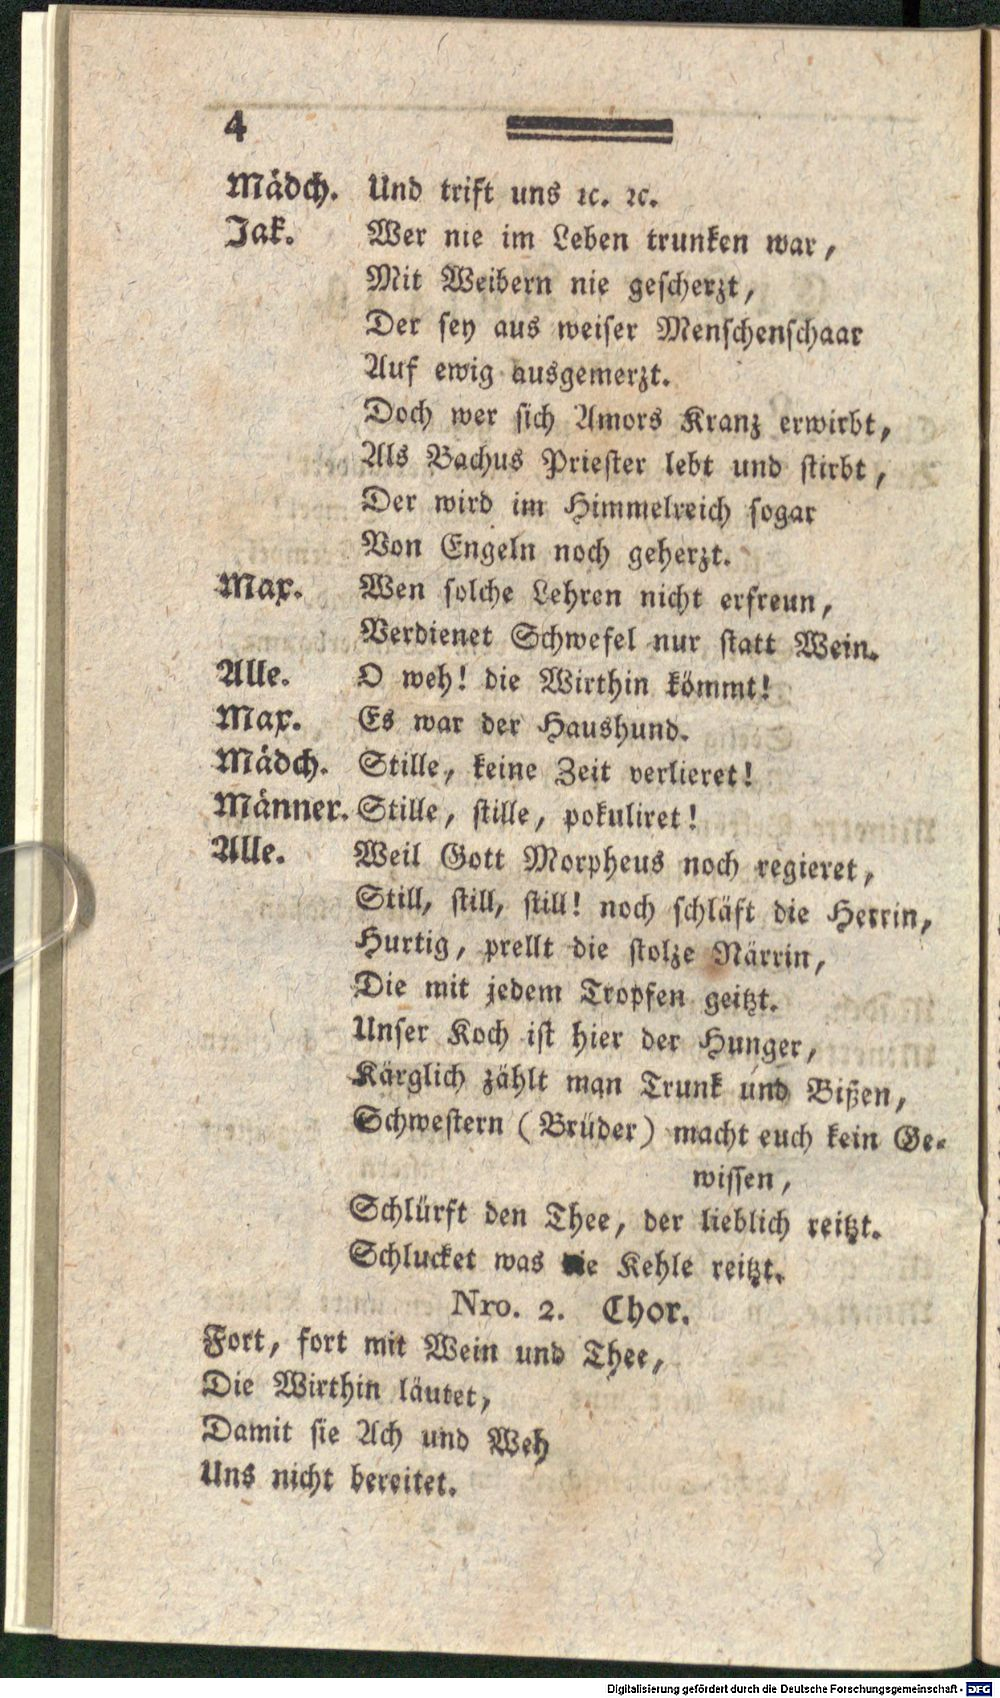 4
Mädch. Und trift uns ꝛc. ꝛc.
Jak. Wer nie im Leben trunken war,
Mit Weibern nie gescherzt,
Der sey aus weiser Menschenschaar
Auf ewig ausgemerzt.
Doch wer sich Amors Kranz erwirbt,
Als Bachus Priester lebt und stirbt,
Der wird im Himmelreich sogar
Von Engeln noch geherzt.
Max. Wen solche Lehren nicht erfreun,
Verdienet Schwefel nur statt Wein.
Alle. O weh! die Wirthin kömmt!
Max. Es war der Haushund.
Mädch. Stille, keine Zeit verlieret!
Männer. Stille, stille, pokuliret!
Alle. Weil Gott Morpheus noch regieret,
Still, still, still! noch schläft die Herrin,
Hurtig, prellt die stolze Närrin,
Die mit jedem Tropfen geitzt.
Unser Koch ist hier der Hunger,
Kärglich zählt man Trunk und Bißen,
Schwestern (Brüder) macht euch kein Ge-
wissen,
Schlürft den Thee, der lieblich reitzt.
Schlucket was die Kehle reitzt.
Nro. 2. Chor.
Fort, fort mit Wein und Thee,
Die Wirthin läutet,
Damit sie Ach und Weh
Uns nicht bereitet.
Digitalisierung gefördert durch die Deutsche Forschungsgemeinschaft - DFG